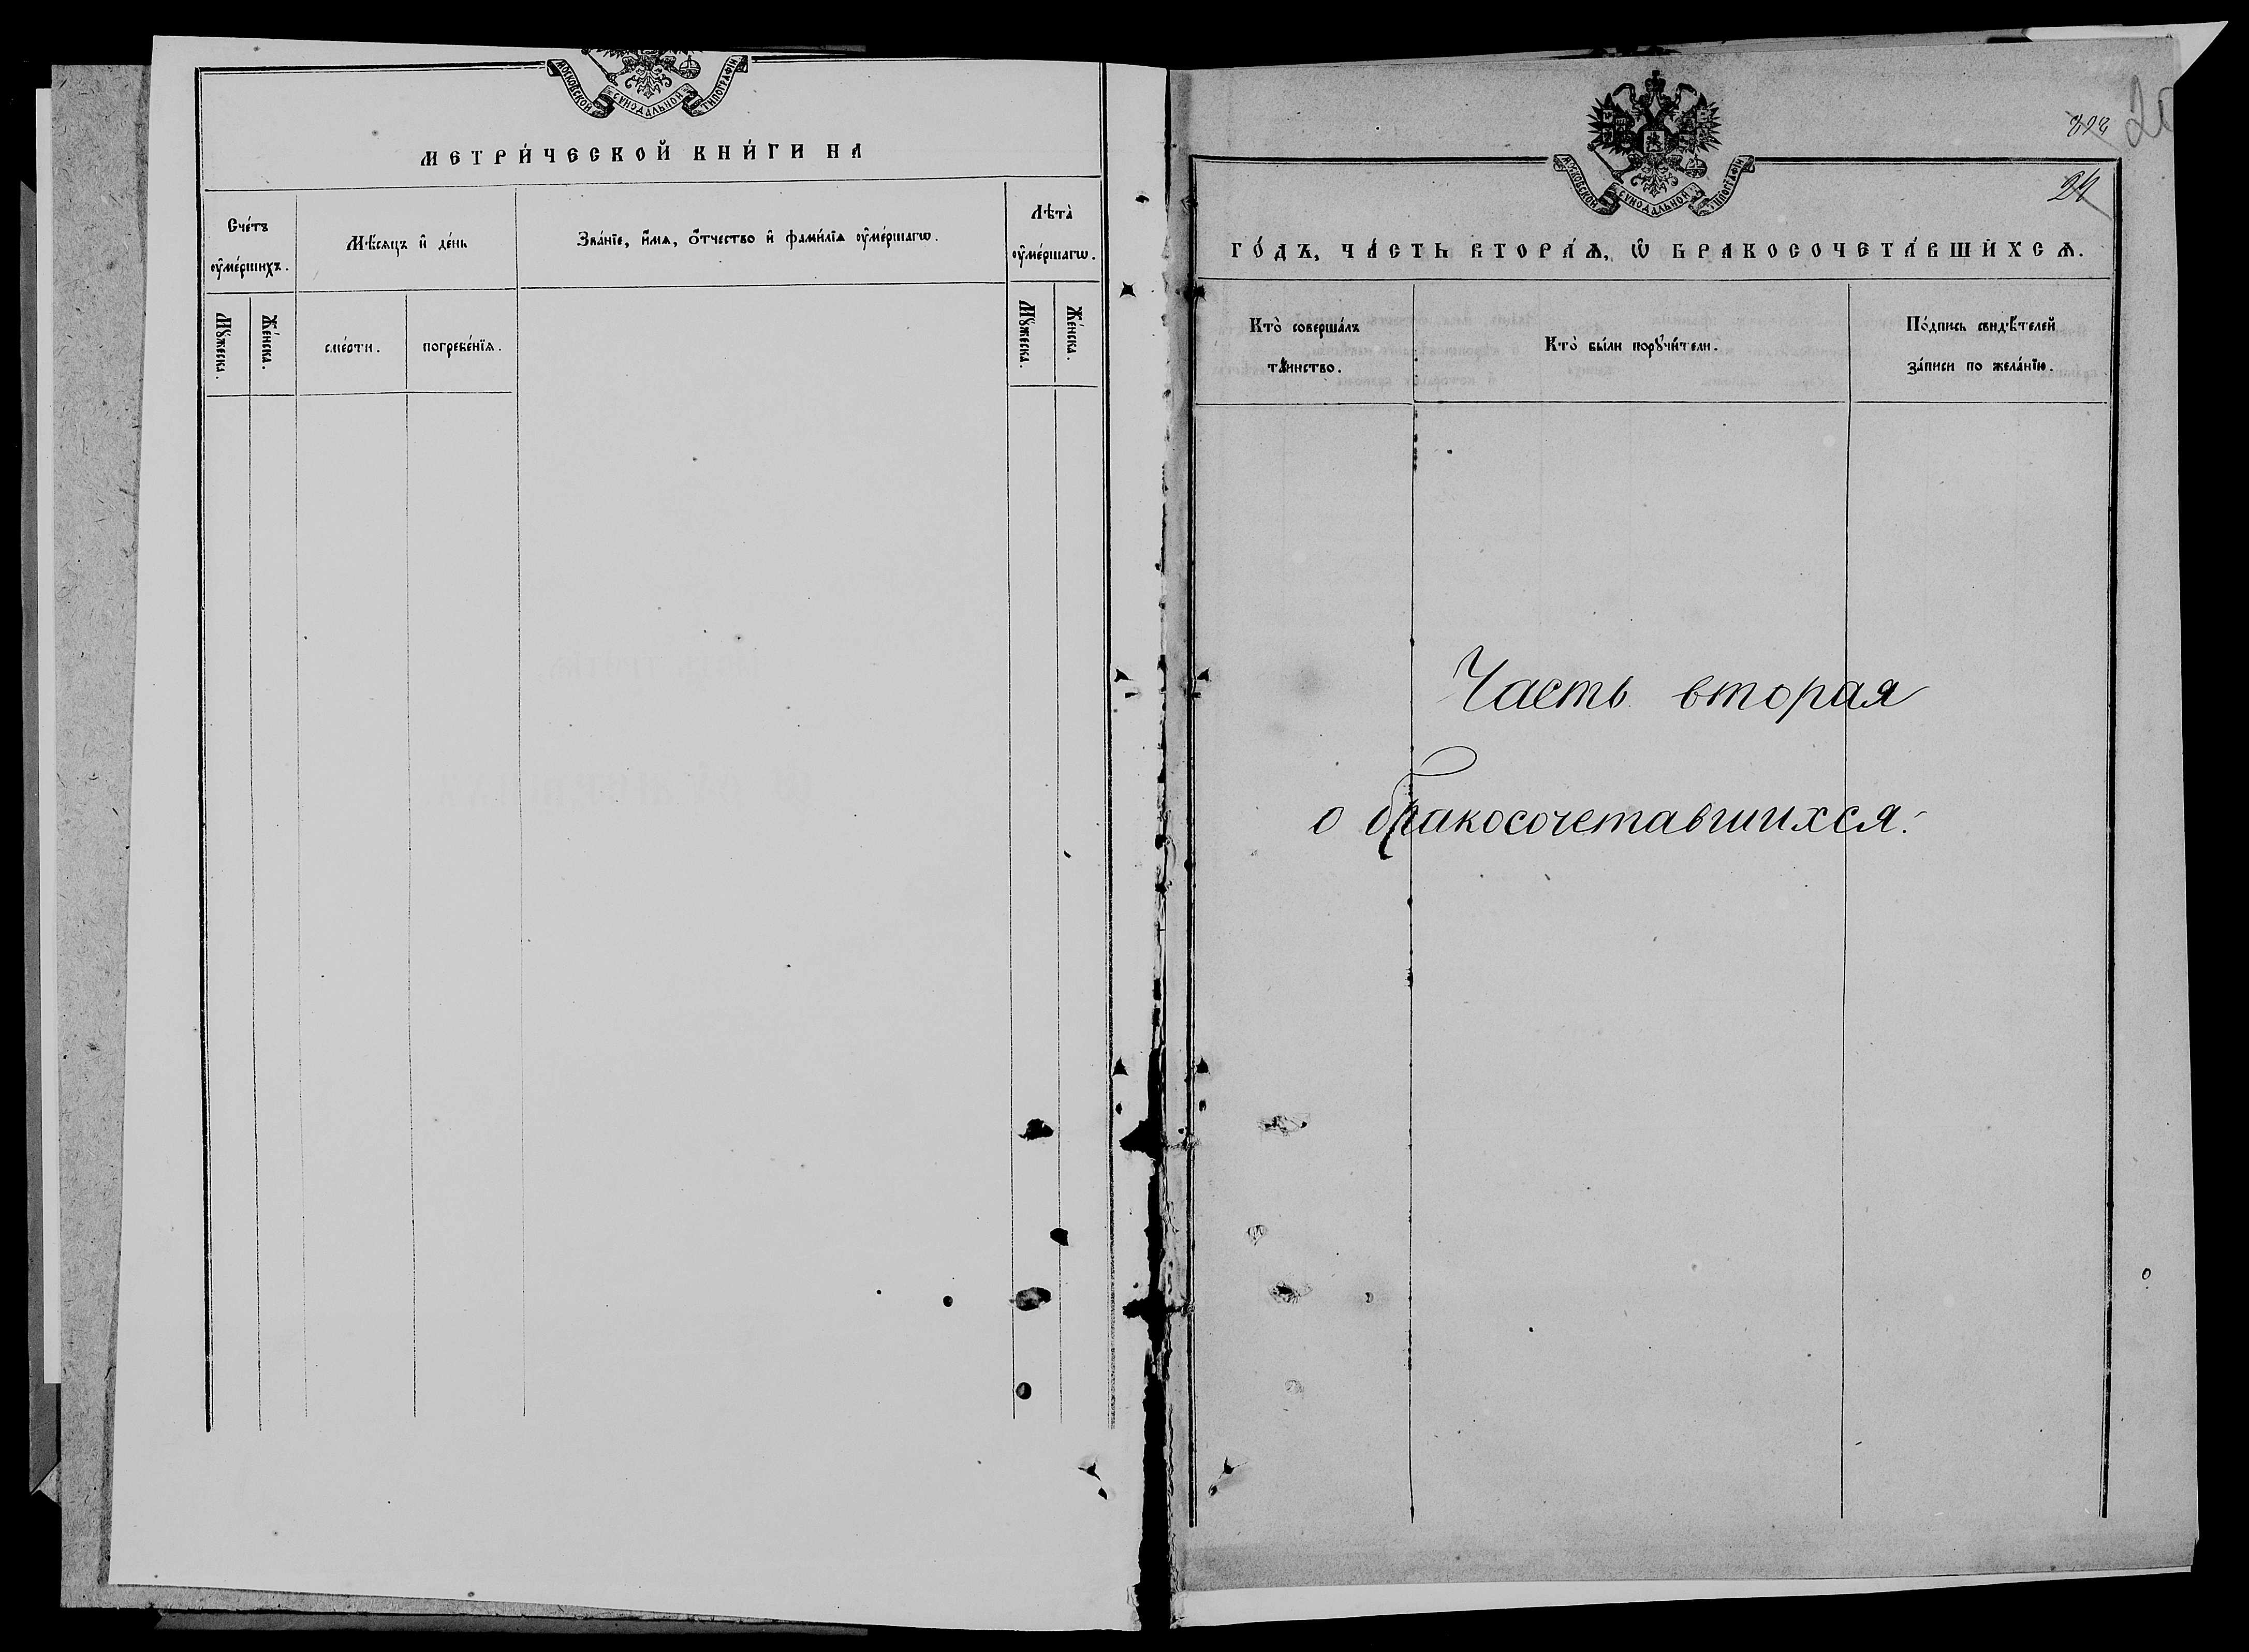 МОСКОВСКОЙ СѴНОДАЛЬНОЙ ТИПОГРАФІИ
МЕТРИ́ЧЕСКОЙ КНИ́ГИ НА
Сче́тъ ᲂу҆ме́ршихъ.
Мѣ́сяцъ и҆ де́нь
Зва́нїе, и҆́мя, ѻ҆́тчество и҆ фами́лїя ᲂу҆ме́ршагѡ.
Лѣта̀ ᲂу҆ме́ршагѡ.
Мꙋ́жеска.
Же́нска.
сме́рти.
погребе́нїя.
Мꙋ́жеска.
Же́нска.
24
МОСКОВСКОЙ СѴНОДАЛЬНОЙ ТИПОГРАФІИ
ГО́ДЪ, ЧА́СТЬ ВТОРА́Ѧ, Ѡ҆ БРАКОСОЧЕТА́ВШИХСѦ.
Кто̀ соверша́лъ та́инство.
Кто̀ бы́ли порꙋчи́тели.
По́дпись свидѣ́телей за́писи по жела́нїю.
Часть вторая
о бракосочетавшихся.